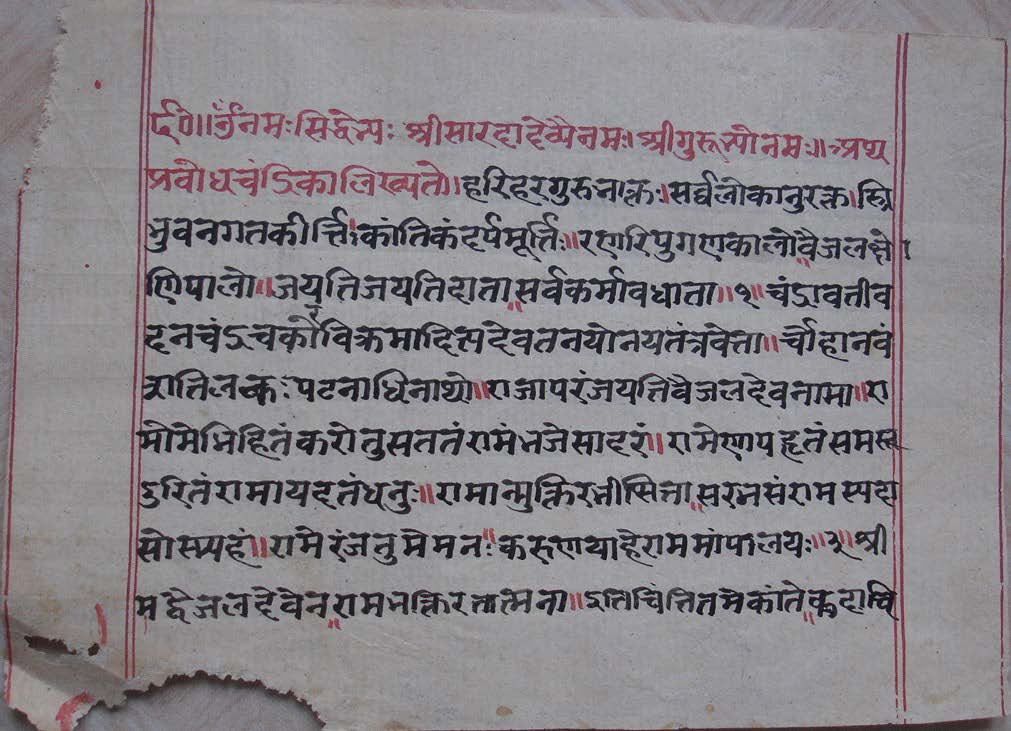 र्द०॥ ॐ नमः सिद्धेभ्यः श्रीसारदादेव्यैनमः। श्रीगुरुभ्योनमः॥ अथ
प्रबोधचंद्रिकालिख्यते॥ हरिहरगुरुभक्तः। सर्व्वलोकानुरक्त। स्त्रि
भुवनगतकीर्त्तिः। कांतिकंदर्पमूर्त्तिः॥ रणरिपुगणकालो॥वैजलक्षो
णिपालो॥ जयतिजयतिदाता॥सर्वकर्मावधाता॥१॥ चंद्रावतीव
दनचंद्रचकोरविक्रमादित्यदेवतनयोनयतंत्रवेत्ता॥ चौहानवं
शतिलकः पटनाधिनाथो॥ राजापरंजयतिवैजलदेवनामा॥ रा
मोमेभिहितंकरोतुसततंरामंभजेसादरं॥ रामेणापहृतंसमस्त
दुरितंरामायदत्तंधनुः॥ रामान्मुक्तिरभीप्सिता॥सरभसंरामस्यदा
सोस्म्यहं॥ रामेरंजतुमेमनः॥ करुणयाहेराममांपालयः॥३॥ श्री
मद्वैजलदेवेन॥रामभक्तिरतात्मना॥ इतिचिंतितमेकांते॥कदाचि